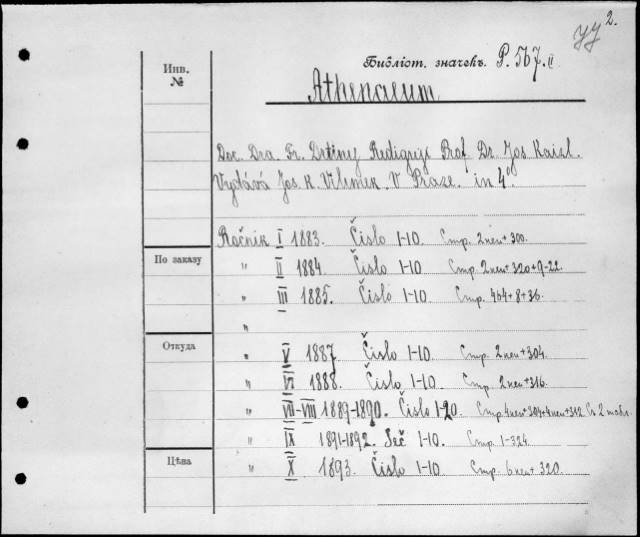 УУ 2.
Инв. №
Библіот. значекъ. P. 567. II
Athenaeum
Doc. Dra. Fr. Drtiny Rediguje Prof Dr. Jos Kaizl.
Vydává Jos. R. Vilimek. V Praze. in 4°.
Ročník I 1883. Číslo 1-10. Стр. 2 нен + 300.
" II 1884. Číslo 1-10 Стр. 2 нен + 320 + 9-22.
" III 1885. Číslo 1-10. Стр. 464 + 8 + 36.
"
" V 1887. Číslo 1-10. Стр. 2 нен + 304.
" VI 1888. Číslo 1-10. Стр. 2 нен + 316.
" VII-VIII 1889-1890. Číslo 1-20. Стр. 4 нен + 304 + 4 нен + 312. Съ 2 табл.
" IX 1891-1892. Seč 1-10. Стр. 1-324.
" X 1893. Číslo 1-10 Стр. 6 нен + 320.
По заказу
Откуда
Цѣна